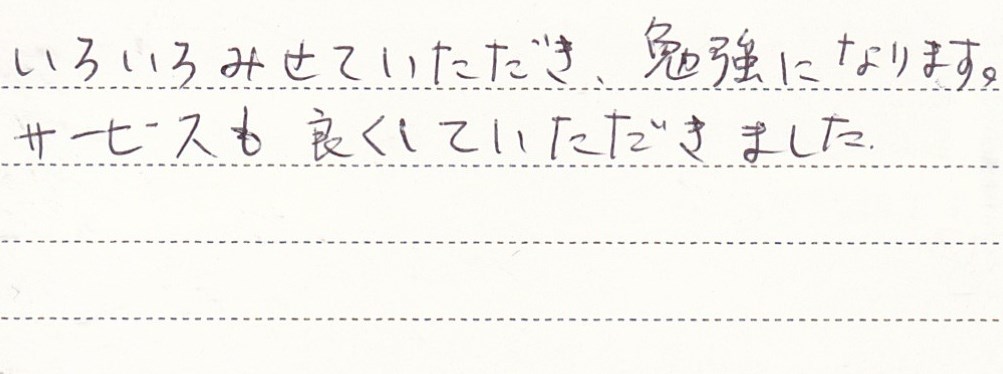 いろいろみせていただき、勉強になります。
サービスも良くしていただきました.